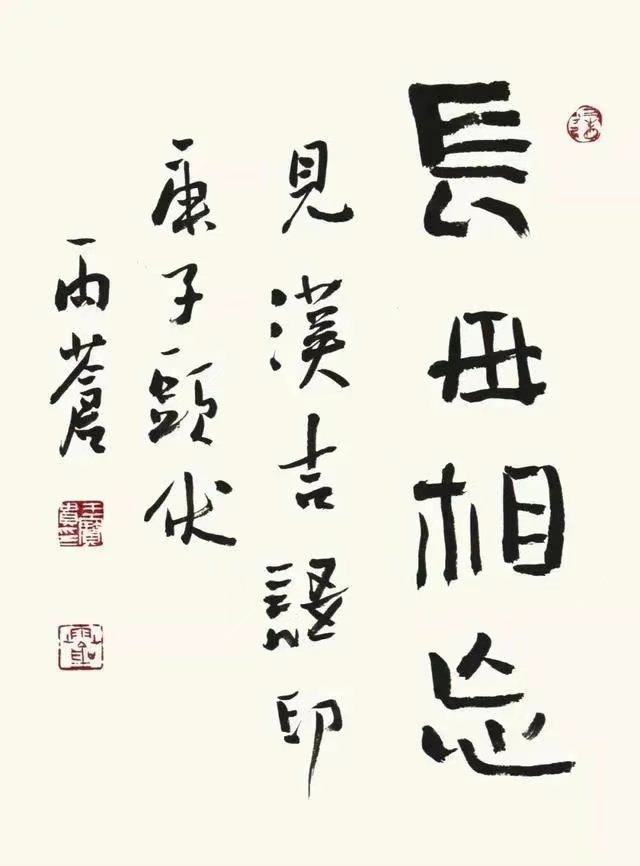 長毋相忘
見漢吉語印
庚子頭伏
雨蒼